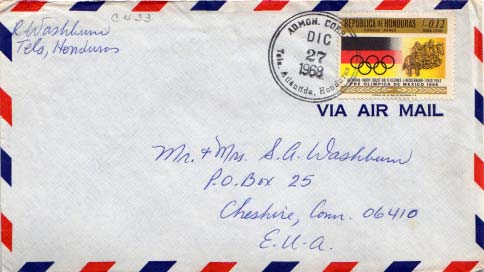 C 433
R Washburn
Tela, Honduras
ADMON. CORREOS
DIC
27
1968
Tela, Atlantida, Honduras
REPUBLICA DE HONDURAS L 0.12
CORREO AEREO
PRE OLIMPICA DE MEXICO 1968
VIA AIR MAIL
Mr. + Mrs. S. A. Washburn
P.O. Box 25
Cheshire, Conn. 06410
E.U.A.